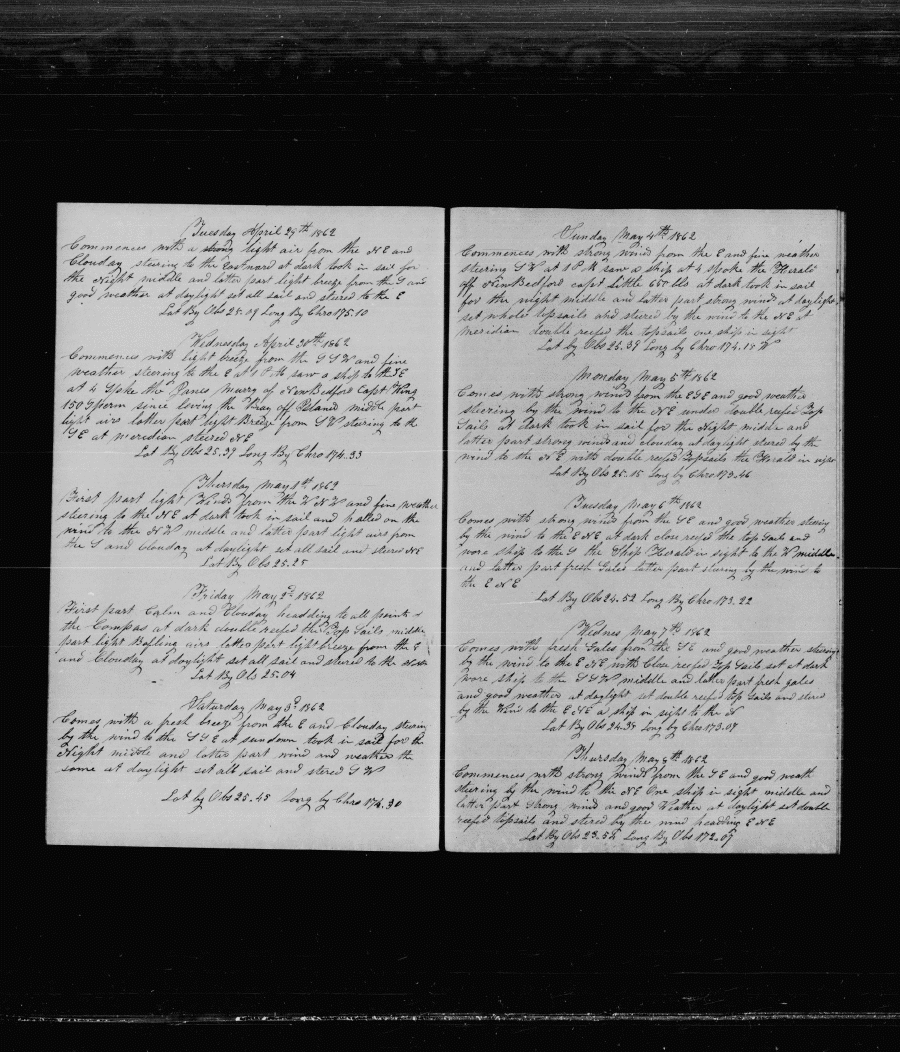 Tuesday April 29th 1862
Commences with a strong light air from the N E and
Clouday steering to the Eastward at dark took in sail for
the Night middle and latter part light breeze from the S and
good weather at daylight set all sail and steered to the E
Lat By Obs 25.09 Long By Chro 175.10
Wednesday April 30th 1862
Commences with light breeze from the S S W and fine
weather steering to the E at 1 P M saw a ship to the S E
at 4 Spoke the James murry of New Bedford Capt King
150 Sperm since leiving the Bay off Island middle part
light airs latter part light Breeze from S W steering to the
S E at meridian steered N E
Lat By Obs 25.39 Long By Chro 174.33
Thursday May 1st 1862
First part light Winds from the W N W and fine weather
steering to the N E at dark took in sail and halled on the
wind to the N W middle and latter part light airs from
the S and Clouday at daylight set all sail and steerd N E
Lat By Obs 25.25
Friday May 2d 1862
First part Calm and Clouday headding to all points
the Compas at dark double reefed the Top Sails middle
part light Bafling airs latter part light breeze from the E
and Clouday at daylight set all sail and steered to the
Lat By Obs 25.04
Saturday May 3d 1862
Comes with a fresh breeze from the E and Clouday steering
by the wind to the S S E at sundown took in sail for the
Night middle and latter part wind and weather the
same at daylight set all sail and stered S W
Lat by Obs 25.45 Long by Chro 174.30
Sunday May 4th 1862
Commences with strong wind from the E and fine weather
steering S W at 1 P M saw a ship at 4 spoke the Herald
off New Bedford capt Little 650 bls at dark took in sail
for the night middle and latter part strong winds at daylight
set whole topsails and steered by the wind to the N E at
meridian double reefed the topsails one ship in sight
Lat By Obs 25.39 Long by Chro 174.15 W
Monday May 5th 1862
Comes with strong winds from the E S E and good weather
steering by the wind to the N E under double reefed Top
Sails at dark took in sail for the Night middle and
latter part strong winds and clouday at daylight steered by the
wind to the N E with double reefed Topsails the Herald in sight
Lat By Obs 25.15 Long by Chro 173.46
Tuesday May 6th 1862
Comes with strong winds from the S E and good weather steering
by the wind to the E N E at dark close reefed the top Sails and
wore ship to the S the Ship Herald in sight to the W middle
and latter part fresh Gales latter part steering by the wind to
the E N E
Lat By Obs 24.52 Long By Chro 173.22
Wednes May 7th 1862
Comes with fresh Gales from the S E and good weather steering
by the wind to the E N E with Close reefed Top Sails at dark
wore ship to the S S W middle and latter part fresh gales
and good weather at daylight set double reefed top Sails and stered
by the Wind to the E N E a ship in sight to the N
Lat By Obs 24.38 Long by Chro 173.07
Thursday May 8th 1862
Commences with strong winds from the S E and good weath
steering by the wind to the N E One ship in sight middle and
latter part Strong wind and good Weather at daylight set double
reefed topsails and stered by the wind headding E N E
Lat By Obs 23.54 Long By Obs 172.09